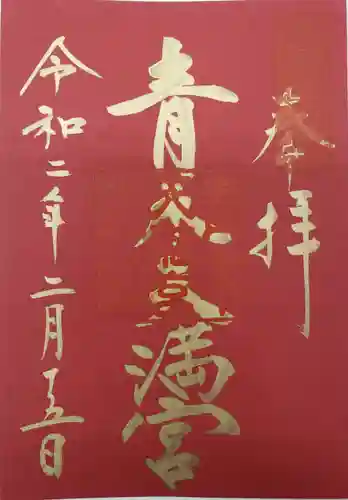 奉拝
青天満宮
令和二年二月五日